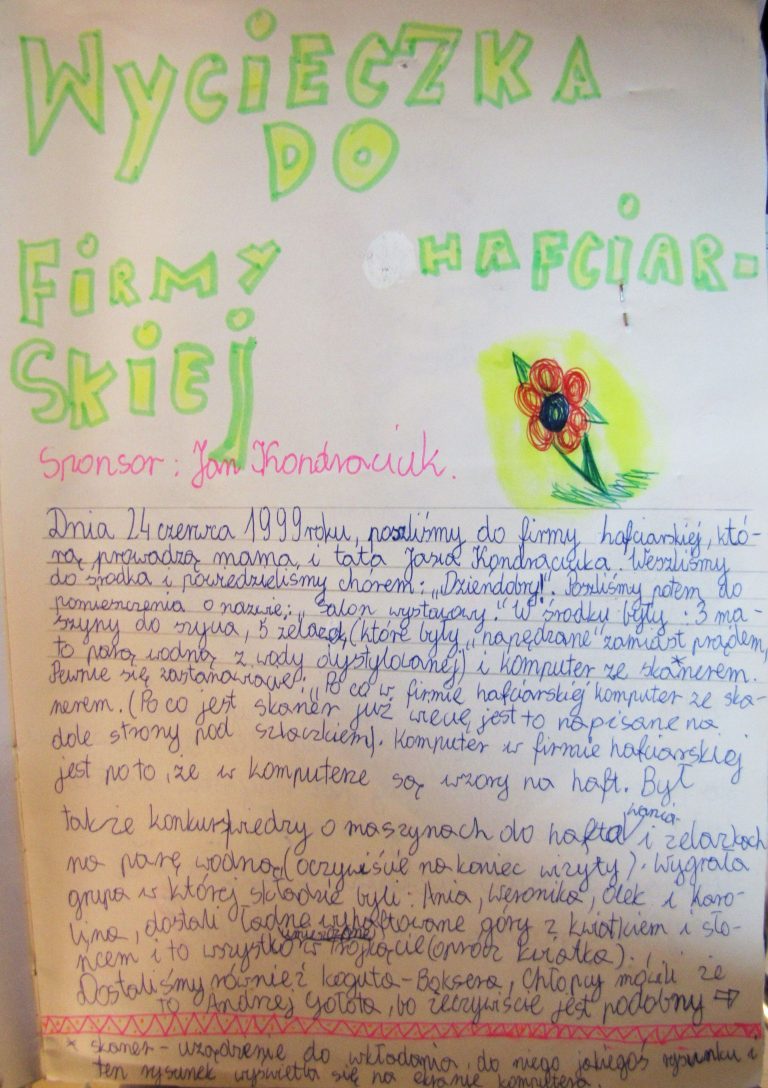 WYCIECZKA
DO
FIRMY HAFCIAR-
SKIEJ
Sponsor: Jan Kondraciuk.
Dnia 24 czerwca 1999 roku, poszliśmy do firmy hafciarskiej, któ-
rą prowadzą mama i tata Jasia Kondraciuka. Weszliśmy
do środka i powiedzieliśmy chórem: „Dzieńdobry!". Poszliśmy potem do
pomieszczenia o nazwie: „Salon wystawowy." W środku były: 3 ma-
szyny do szycia, 5 żelazek, (które były „napędzane" zamiast prądem,
to parą wodną z wody dystylowanej) i komputer ze ska*nerem.
Pewnie się zastanawiacie: „Po co w firmie hafciarskiej komputer ze ska-
nerem. (Po co jest skaner już wiecie, jest to napisane na
dole strony pod szlaczkiem). Komputer w firmie hafciarskiej
jest po to, że w komputerze są wzory na haft. Był
także konkurs wiedzy o maszynach do haftowania i żelazkach
na parę wodną (oczywiście na koniec wizyty). Wygrała
grupa w której składzie byli: Ania, Weronika, Olek i Karo-
lina, dostali ładne wyhaftowane góry z kwiatkiem i sło-
ńcem i to wszystko umieszczone w trójkącie (oprócz kwiatka).
Dostaliśmy również koguta-Boksera, Chłopcy mówili że
to Andrzej Gołota, bo rzeczywiście jest podobny ⇒
* skaner - urządzenie do wkładania, do niego jakiegoś rysunku i
ten rysunek wyświetla się na ekranie komputera